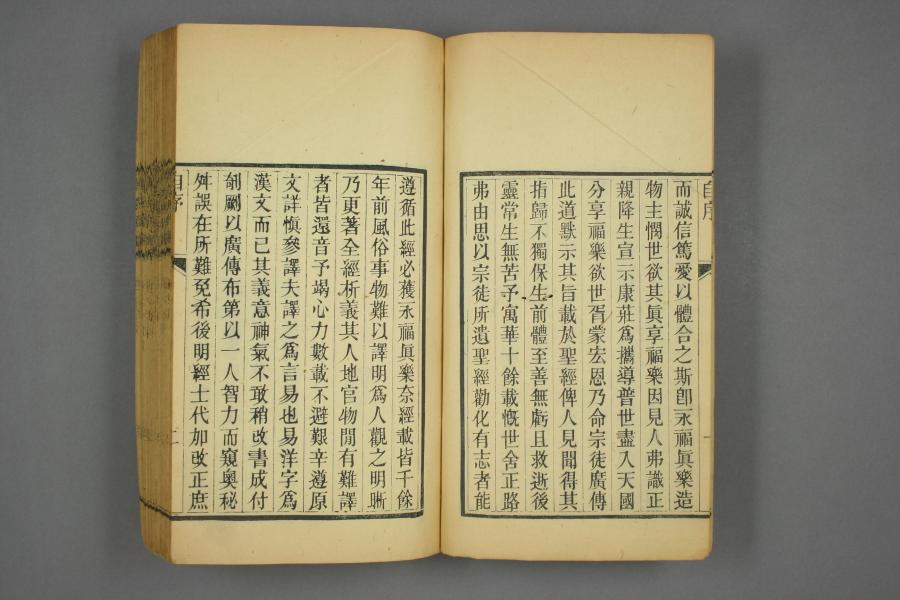 自序
而誠信篤愛以體合之斯卽永福眞樂造
物主憫世欲其眞享福樂因見人弗識正
親降生宣示康莊爲攜導普世盡入天國
分享福樂欲世胥蒙宏恩乃命宗徒廣傳
此道默示其旨載於聖經俾人見聞得其
指歸不獨保生前體至善無虧且救逝後
靈常生無苦予寓華十餘載慨世舍正路
弗由思以宗徒所遺聖經勸化有志者能
遵循此經必獲永福眞樂奈經載皆千餘
年前風俗事物難以譯明爲人觀之明晰
乃更著全經析義其人地官物閒有難譯
者皆還音予竭心力數載不避艱辛遵原
文詳愼參譯夫譯之爲言易也易洋字爲
漢文而已其義意神氣不敢稍改書成付
刳劂以廣傳布第以一人智力而窺奧秘
舛誤在所難免希後明經士代加改正庶
自序
二